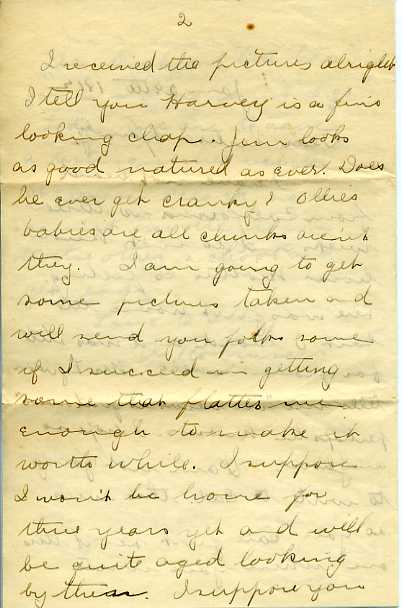 2
I received the pictures alright
I tell you Harvey is a fine
looking chap. Jim looks
as good natured as ever. Does
he ever get cranky? Ollies
babies are all chunks aren't
they. I am going to get
some pictures taken and
will send you folks some
if I succeed in getting
some that flatter me
enough to make it
worth while. I suppose
I won't be home for
three years yet and will
be quite aged looking
by then. I suppose you